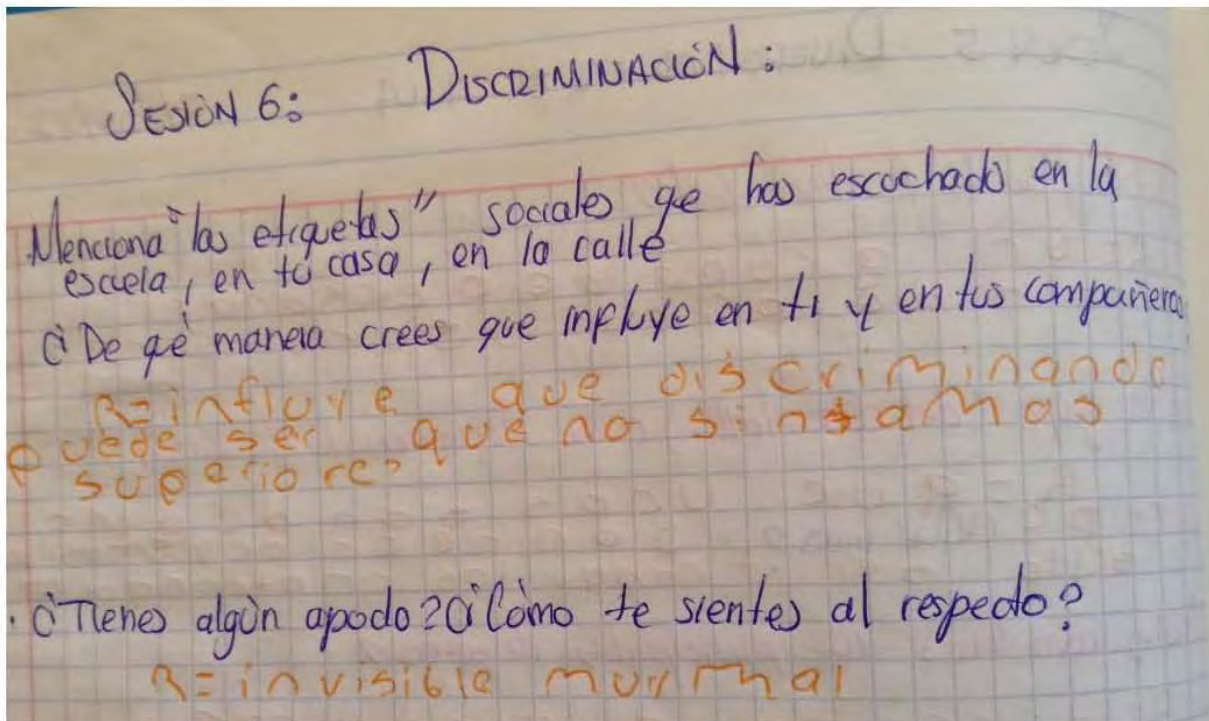 SESIÓN 6: DISCRIMINACIÓN:
Menciona "las etiquetas" sociales qe has escuchado en la
escuela, en tú casa, en la calle
¿De qé manera crees que influye en ti y en tus compañeros
R=influye que discriminando
puede ser que no sintamos
superiores
¿Tienes algún apodo? ¿Cómo te sientes al respecto?
R=invisible muy mal